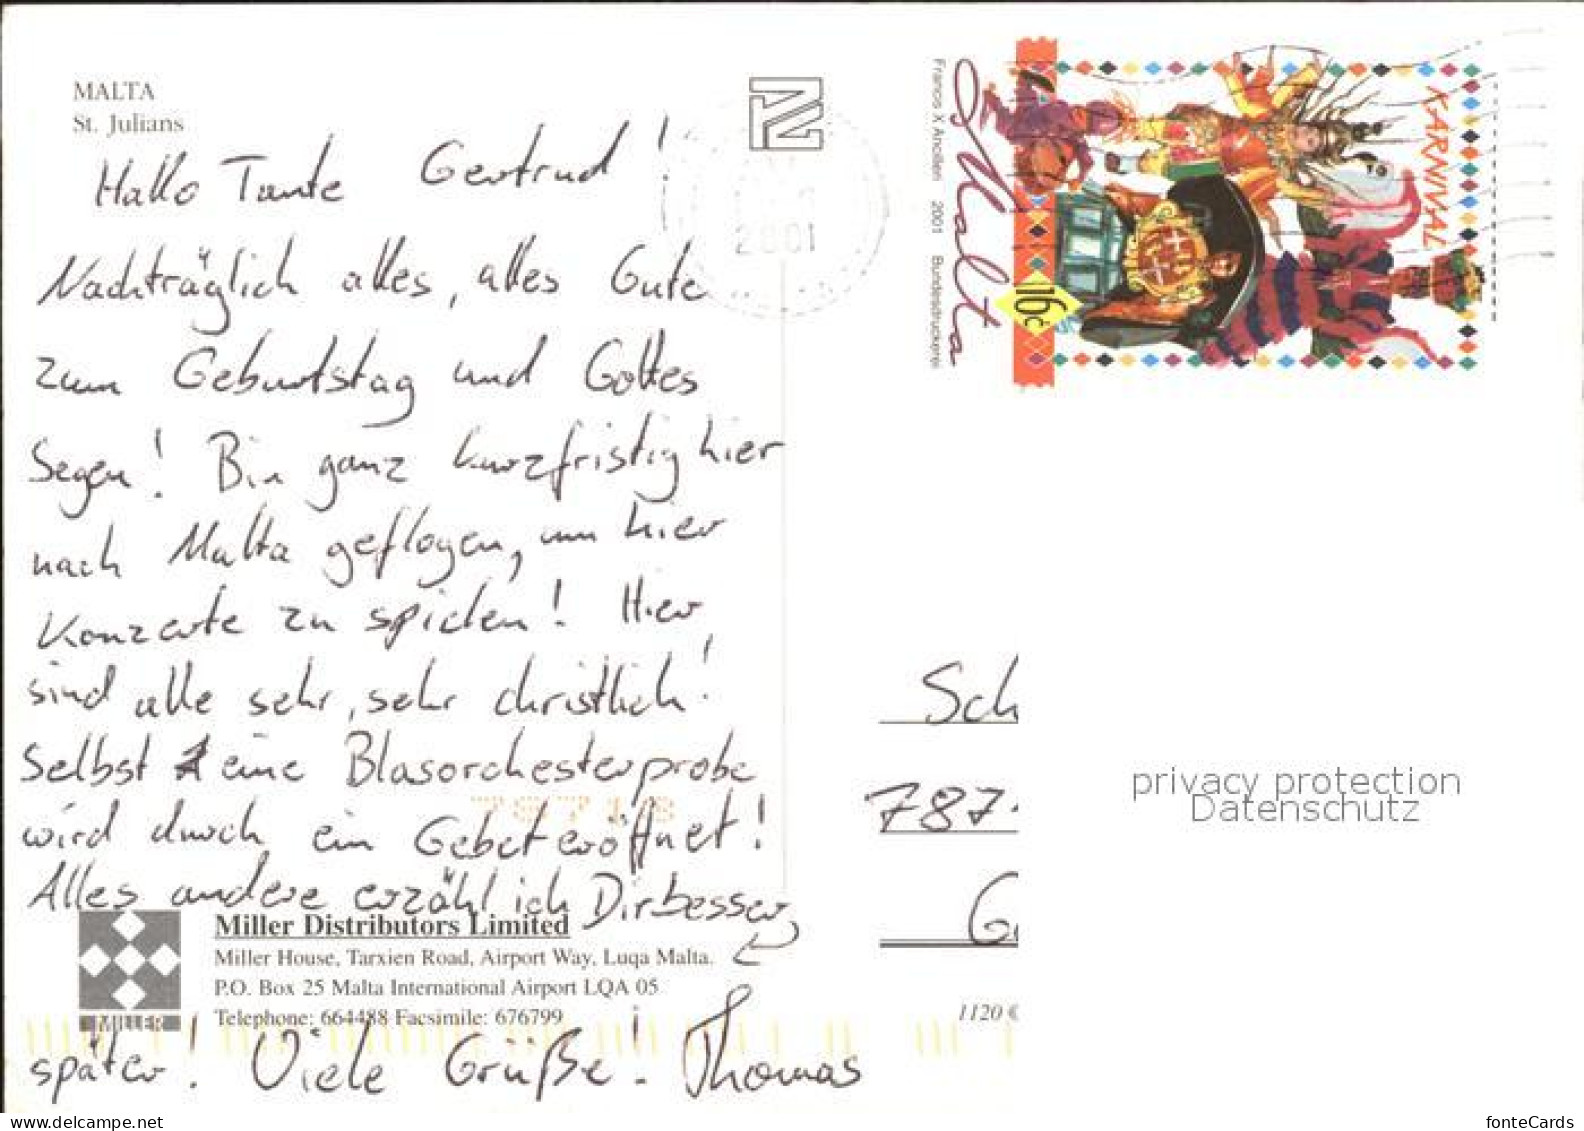 MALTA
St. Julians
Hallo Tante Gertrud!
Nachträglich alles, alles Gute
zum Geburtstag und Gottes
Segen! Bin ganz kurzfristig hier
nach Malta geflogen, um hier
Konzerte zu spielen! Hier
sind alle sehr, sehr christlich!
Selbst eine Blasorchesterprobe
wird durch ein Gebet eröffnet!
Alles andere erzähl ich Dir besser
später! Viele Grüße! Thomas
Miller Distributors Limited
Miller House, Tarxien Road, Airport Way, Luqa Malta.
P.O. Box 25 Malta International Airport LQA 05
Telephone: 664488 Facsimile: 676799
MILLER
2001
Francis X Ancilleri 2001 Bundesdruckerei
Malta
16c
KARNIVAL
Sch
787
G
78713
1120 €
privacy protection
Datenschutz
delcampe.net
fonteCards